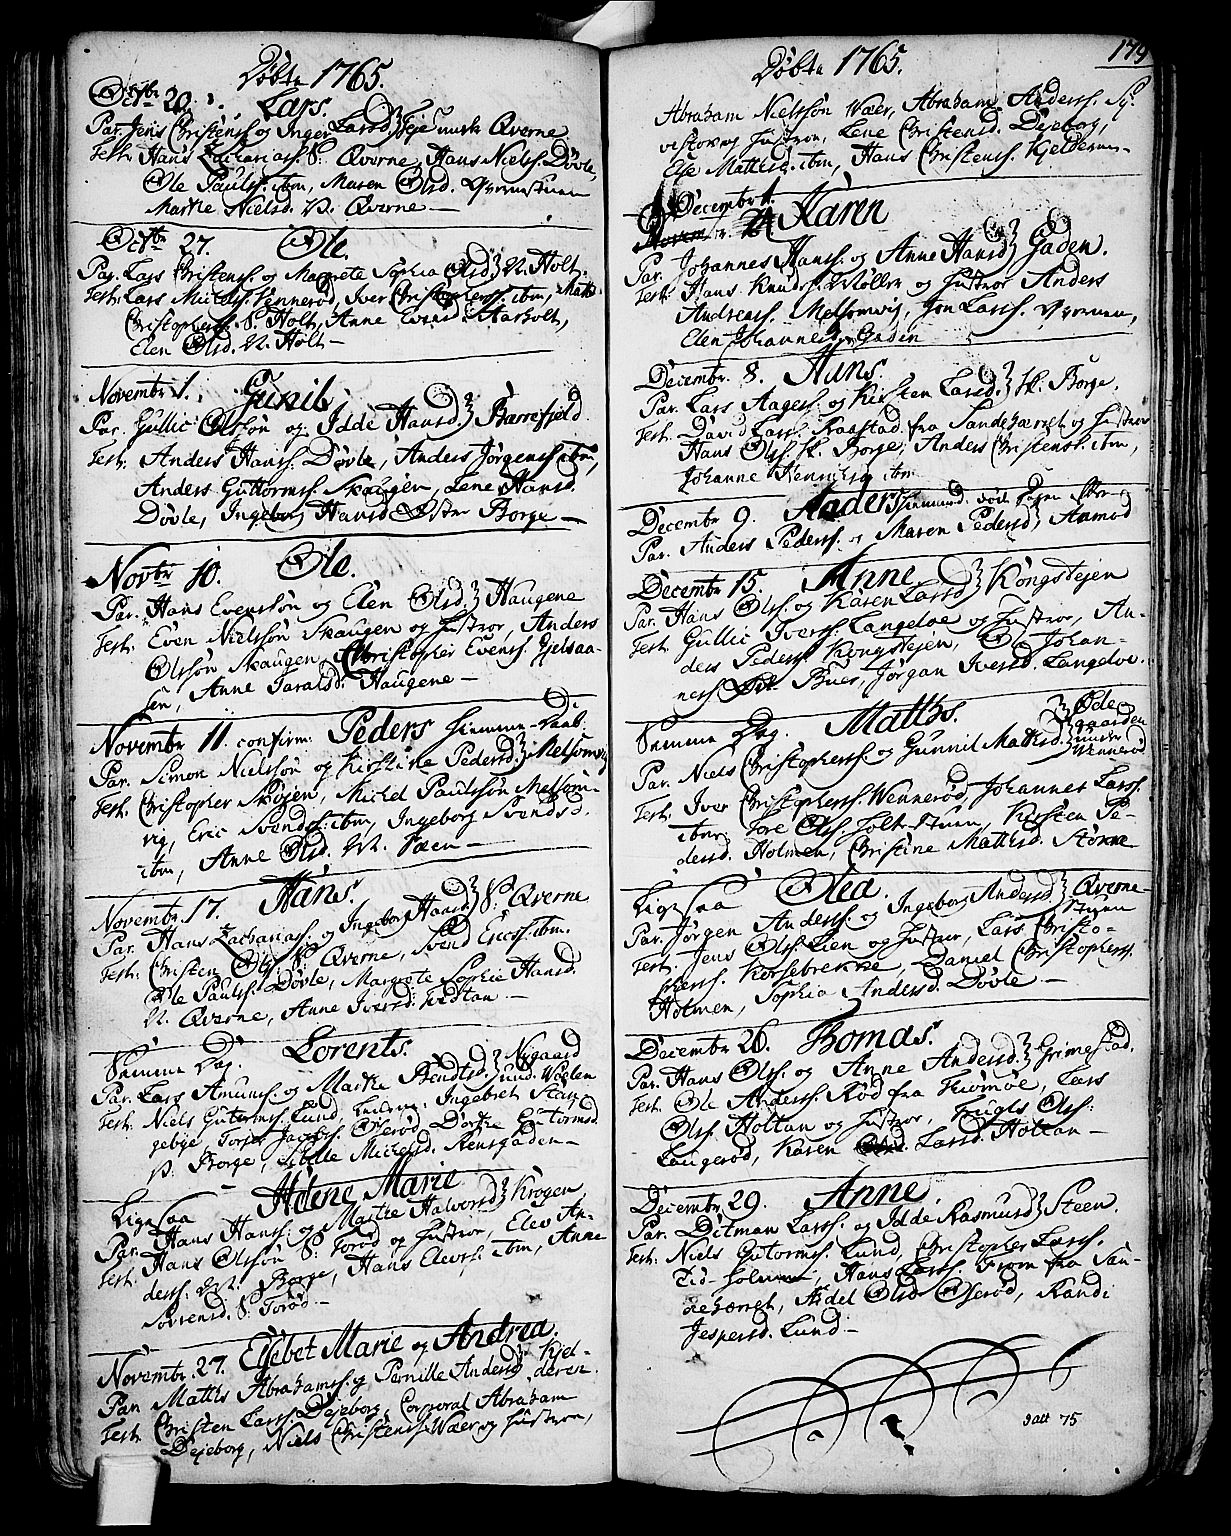 Døbte 1765.
Octbr 20. Lars.
Par. Jens Christenss og Inger Larsd. Teje undr Qverne
Test. Hans Zachariass. S. Qverne, Hans Niels. Døvle,
Ole Paulss. ibm, Maren Olsd. Qvernstuen
Marthe Nielsd. N. Qverne —
Octbr 27. Ole.
Par. Lars Christenss. og Margrete Sophia Olsd N. Holt.
Test. Lars Michelss. Vennerød, Iver Christophers. ibm, Matts
Christopherss. S. Holt, Anne Evensd. Aarholt,
Elen Olsd. N. Holt —
Novembr 1. Gunil.
Par. Gullic Olssøn og Idde Hansd. Barresjeld
Test. Anders Hanss. Døvle, Anders Jørgenss. ibm,
Anders Guttormss. Skaugen, Lene Hansd.
Døvle, Ingeborg Hansd. Østre Borge —
Novbr 10. Ole.
Par. Hans Evensøn og Elen Olsd Haugene
Test. Even Nielssøn Skaugen og Hustroe, Anders
Olssøn Skaugen, Christopher Evenss. Gjelsaa-
sen, Anne Taralsd. Haugene —
Novembr 11. confirm. Peders hiemme-Daab.
Par. Simon Nielssøn og Kirstine Pedersd. Melsomvig
Test. Christopher Skøjen, Michel Paulssøn Melsom-
vig, Eric Svends. ibm, Ingeborg Svendsd.
ibm, Anne Olsd. V. Fæen —
Novembr. 17. Hans.
Par. Hans Zachariass. og Ingeborg Hansd S. Qverne
Test. Christen Ols. S. Qverne, Svend Ericss. ibm.
Ole Paulss. Døvle, Margrete Sophie Hansd.
N. Qverne, Anne Iversd. Hvidtan —
Samme Dag. Lorents.
Par. Lars Amunss. og Marthe Bendtsd. Nygaard und. Valen
Test. Niels Gutormss. Lund, Ingebret Skar-
gebye, Torjer Jacobss. Oserød, Dorthe Gutormsd.
V. Borge, Sibille Michelsd. Rensgaden —
Ligesaa Helene Marie
Par. Hans Hanss. og Marthe Halvorsd Krogen
Test. Hans Olssøn S. Torød og Hustroe, Elev An-
derss. V. Borge, Hans Elevs. ibm, Anne
Sørensd. S. Torød. —
Novembr. 27. Elsebet Marie og Andrea.
Par. Matths Abrahamss. og Pernille Andersd Kjel-
deren.
Test. Christen Larss. Dejeborg, Corporal Abraham
Dejeborg, Niels Christenss. Waer og Hustroe,
179
Døbte 1765.
Abraham Nielssøn Waer, Abraham Anderss. Sy-
vestov og Hustroe, Lene Christensd. Dejeborg,
Else Mattesd. ibm, Hans Christenss. Kjelderen —
Decembr 1. Karen
Par. Johannes Hanss. og Anne Hansd Gaden.
Test. Hans Knuds. Møller og Hustroe Anders
Andreass. Melsomvig, Jon Larss. Qvernen,
Elen Johannesd. Gaden
Decembr. 8. Hans.
Par. Lars Aagess. og Kirsten Larsd. Sk. Borge.
Test. David Larss. Raastad fra Sandehærret og Hustroe
Hans Olss. Sk. Borge, Anders Christenss. ibm,
Johanne Henrichsd. ibm
Decembr 9. Anders
Par. Anders Pederss. og Maren Pedersd. Aamod
Decembr 15. Anne.
Par. Hans Olss. og Karen Larsd Kongstejen
Test. Gullic Iverss. Langeloe og Hustroe, An-
ders Pederss. Kongstejen, Ole Johan-
ness. Buer, Jørgan Iversd. Langeloe.
Samme Dag. Matths.
Par. Niels Christopherss. og Gunnil Mathisd. Øde-
gaarden
under
Wennerød
Test. Iver Christopherss. Wennerød, Johannes Larss.
ibm, Tore Olss. Holt-Stuen, Kirsten Pe-
dersd. Holmen, Christine Mattisd. Stokke
Ligesaa Olea.
Par. Jørgen Anderss. og Ingeborg Andersd Qverne-
Stuen
Test. Jens Olss. Lien og Hustroe, Lars Christo-
phers. Korsebrekke, Daniel Christopherss.
Holmen, Sophia Andersd. Døvle —
Decembr 26. Tomas.
Par. Hans Olss. og Anne Andersd. Grimestad.
Test. Ole Anderss. Rød fra Tiømøe, Lars
Olss. Holtan og Hustroe, Fugls Olss.
Laugerød, Karen Larsd. Holtan —
Decembr 29. Anne.
Par. Ditman Larss. og Idde Rasmusd Steen.
Test. Niels Gutormss. Lund, Christopher Larss.
Tid-holmen, Hans Larss. From fra San-
dehærret, Sidel Olsd Oserød, Randi
Jespersd. Lund —
Datt 75